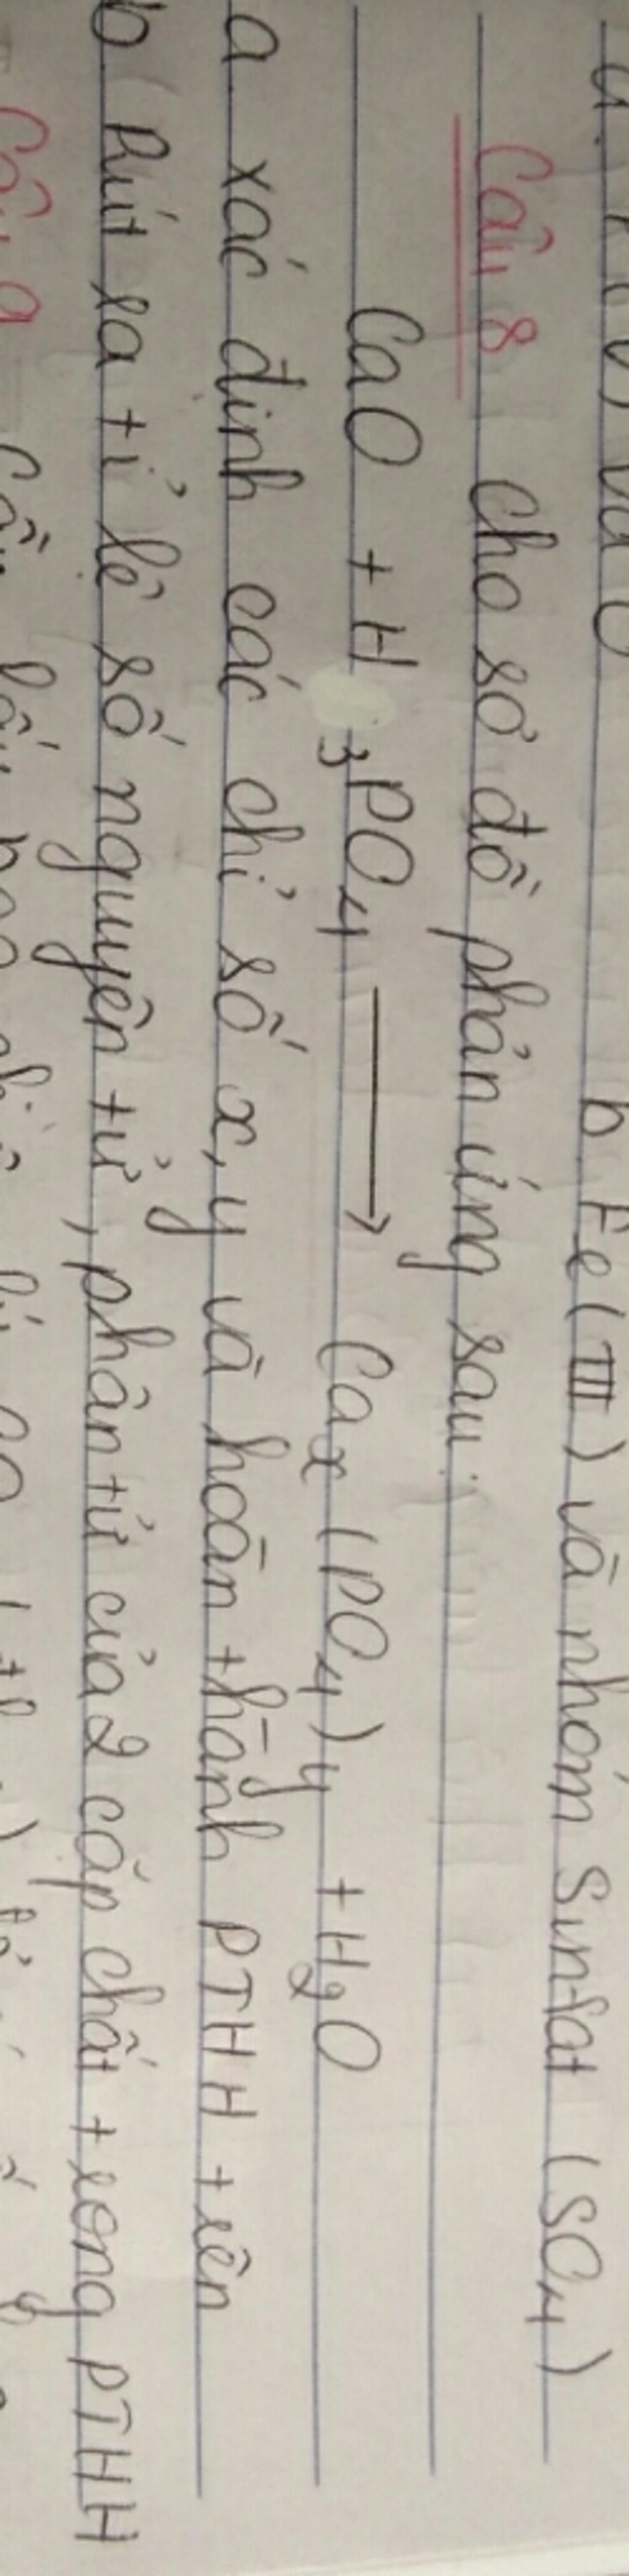 b. Fe(III) và nhóm Sunfat (SO4)
Câu 8 cho sơ đồ phản ứng sau:
CaO + H3PO4 → Cax(PO4)y + H2O
a. xác định các chỉ số x, y và hoàn thành PTHH trên
b. Rút ra tỉ lệ số nguyên tử, phân tử của 2 cặp chất trong PTHH